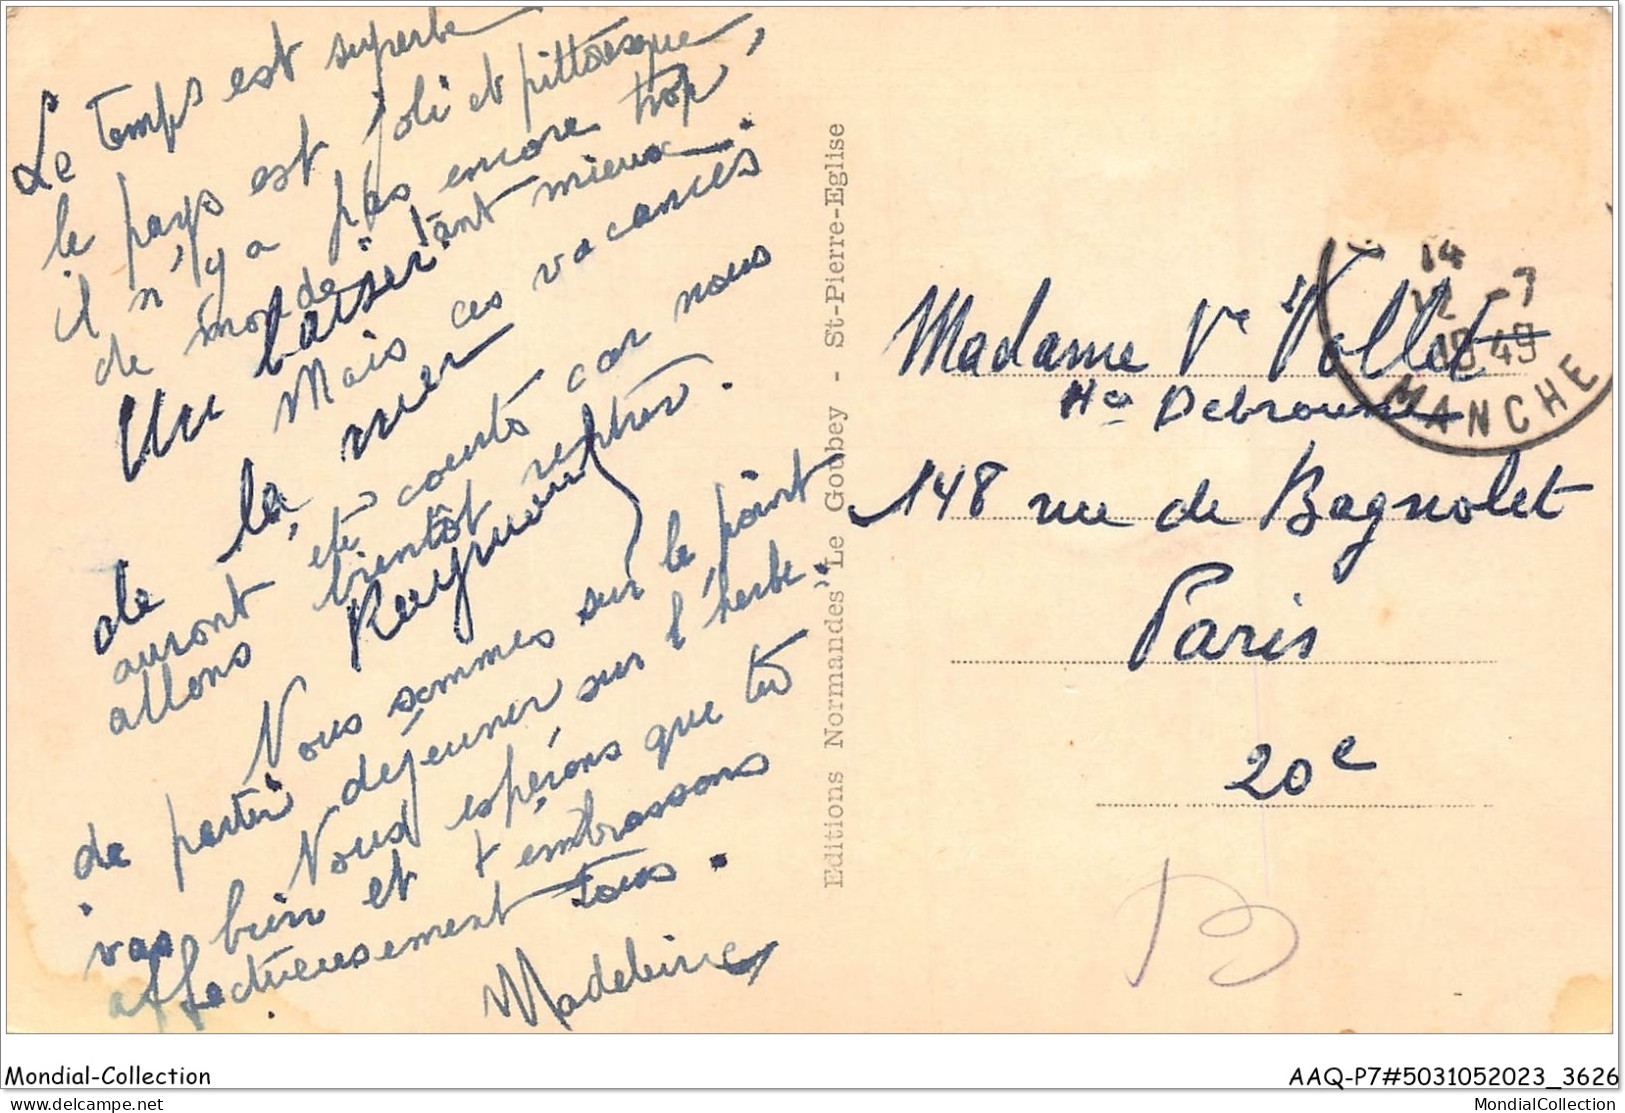 Le temps est superbe
le pays est joli et pittoresque,
il n'y a pas encore trop
de monde, tant mieux.
Un baiser
Mais ces vacances
de la mer
auront été courts car nous
allons bientôt rentrer.
Raymond
Nous sommes sur le point
de partir déjeuner sur l'herbe.
Nous espérons que tu
vas bien et t'embrassons
affectueusement tous.
Madeleine
Editions Normandes Le Goubey - St-Pierre-Eglise
14
12 -7
1949
MANCHE
Madame Ve Vollet
148 rue de Bagnolet
Paris
20e
B
Mondial-Collection
AAQ-P7#5031052023_3626
delcampe.net
MondialCollection